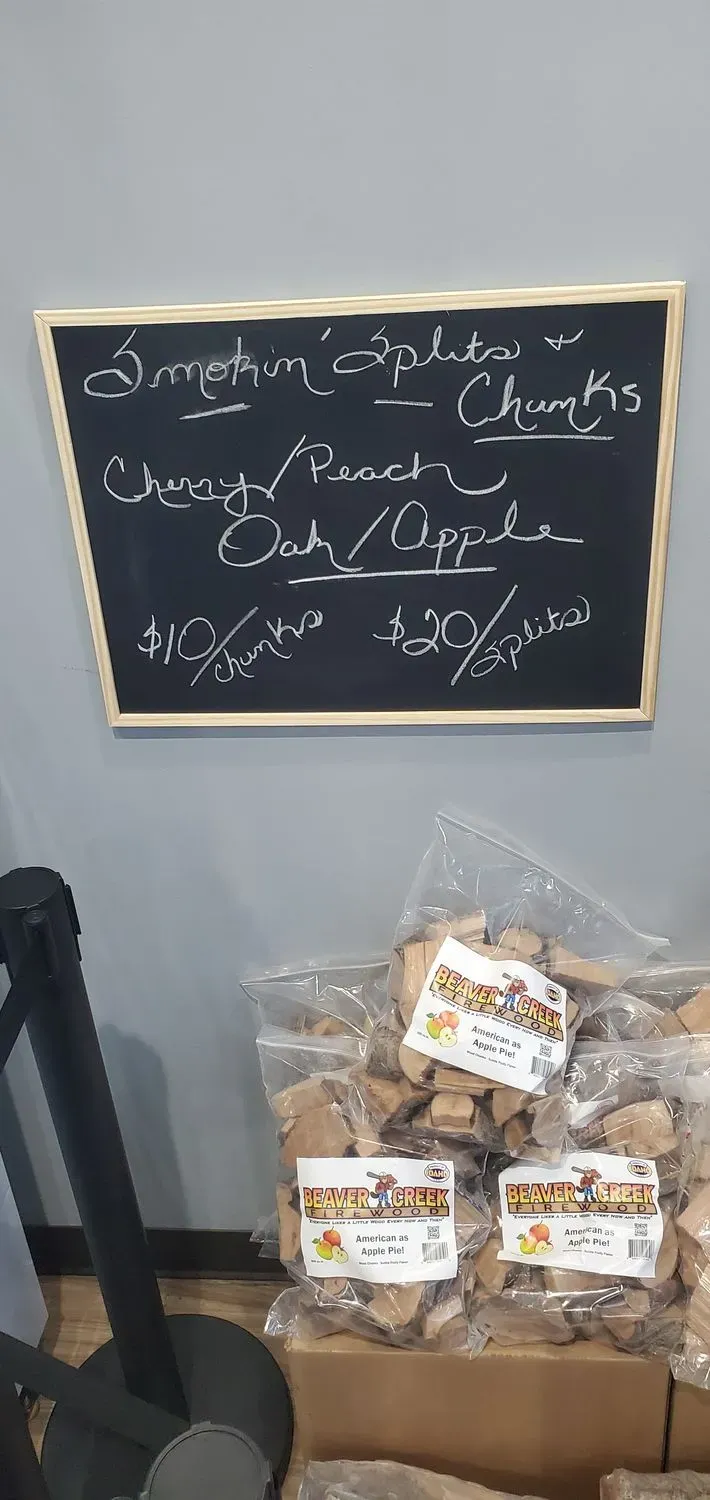 Smokin' Splits +
Chunks
Cherry/Peach
Oak/Apple
$10/chunks $20/Splits
BEAVER CREEK
FIREWOOD
"EVERYONE LIKES A LITTLE WOOD EVERY NOW AND THEN"
American as
Apple Pie!
BEAVER CREEK
FIREWOOD
"EVERYONE LIKES A LITTLE WOOD EVERY NOW AND THEN"
American as
Apple Pie!
BEAVER CREEK
FIREWOOD
"EVERYONE LIKES A LITTLE WOOD EVERY NOW AND THEN"
American as
Apple Pie!